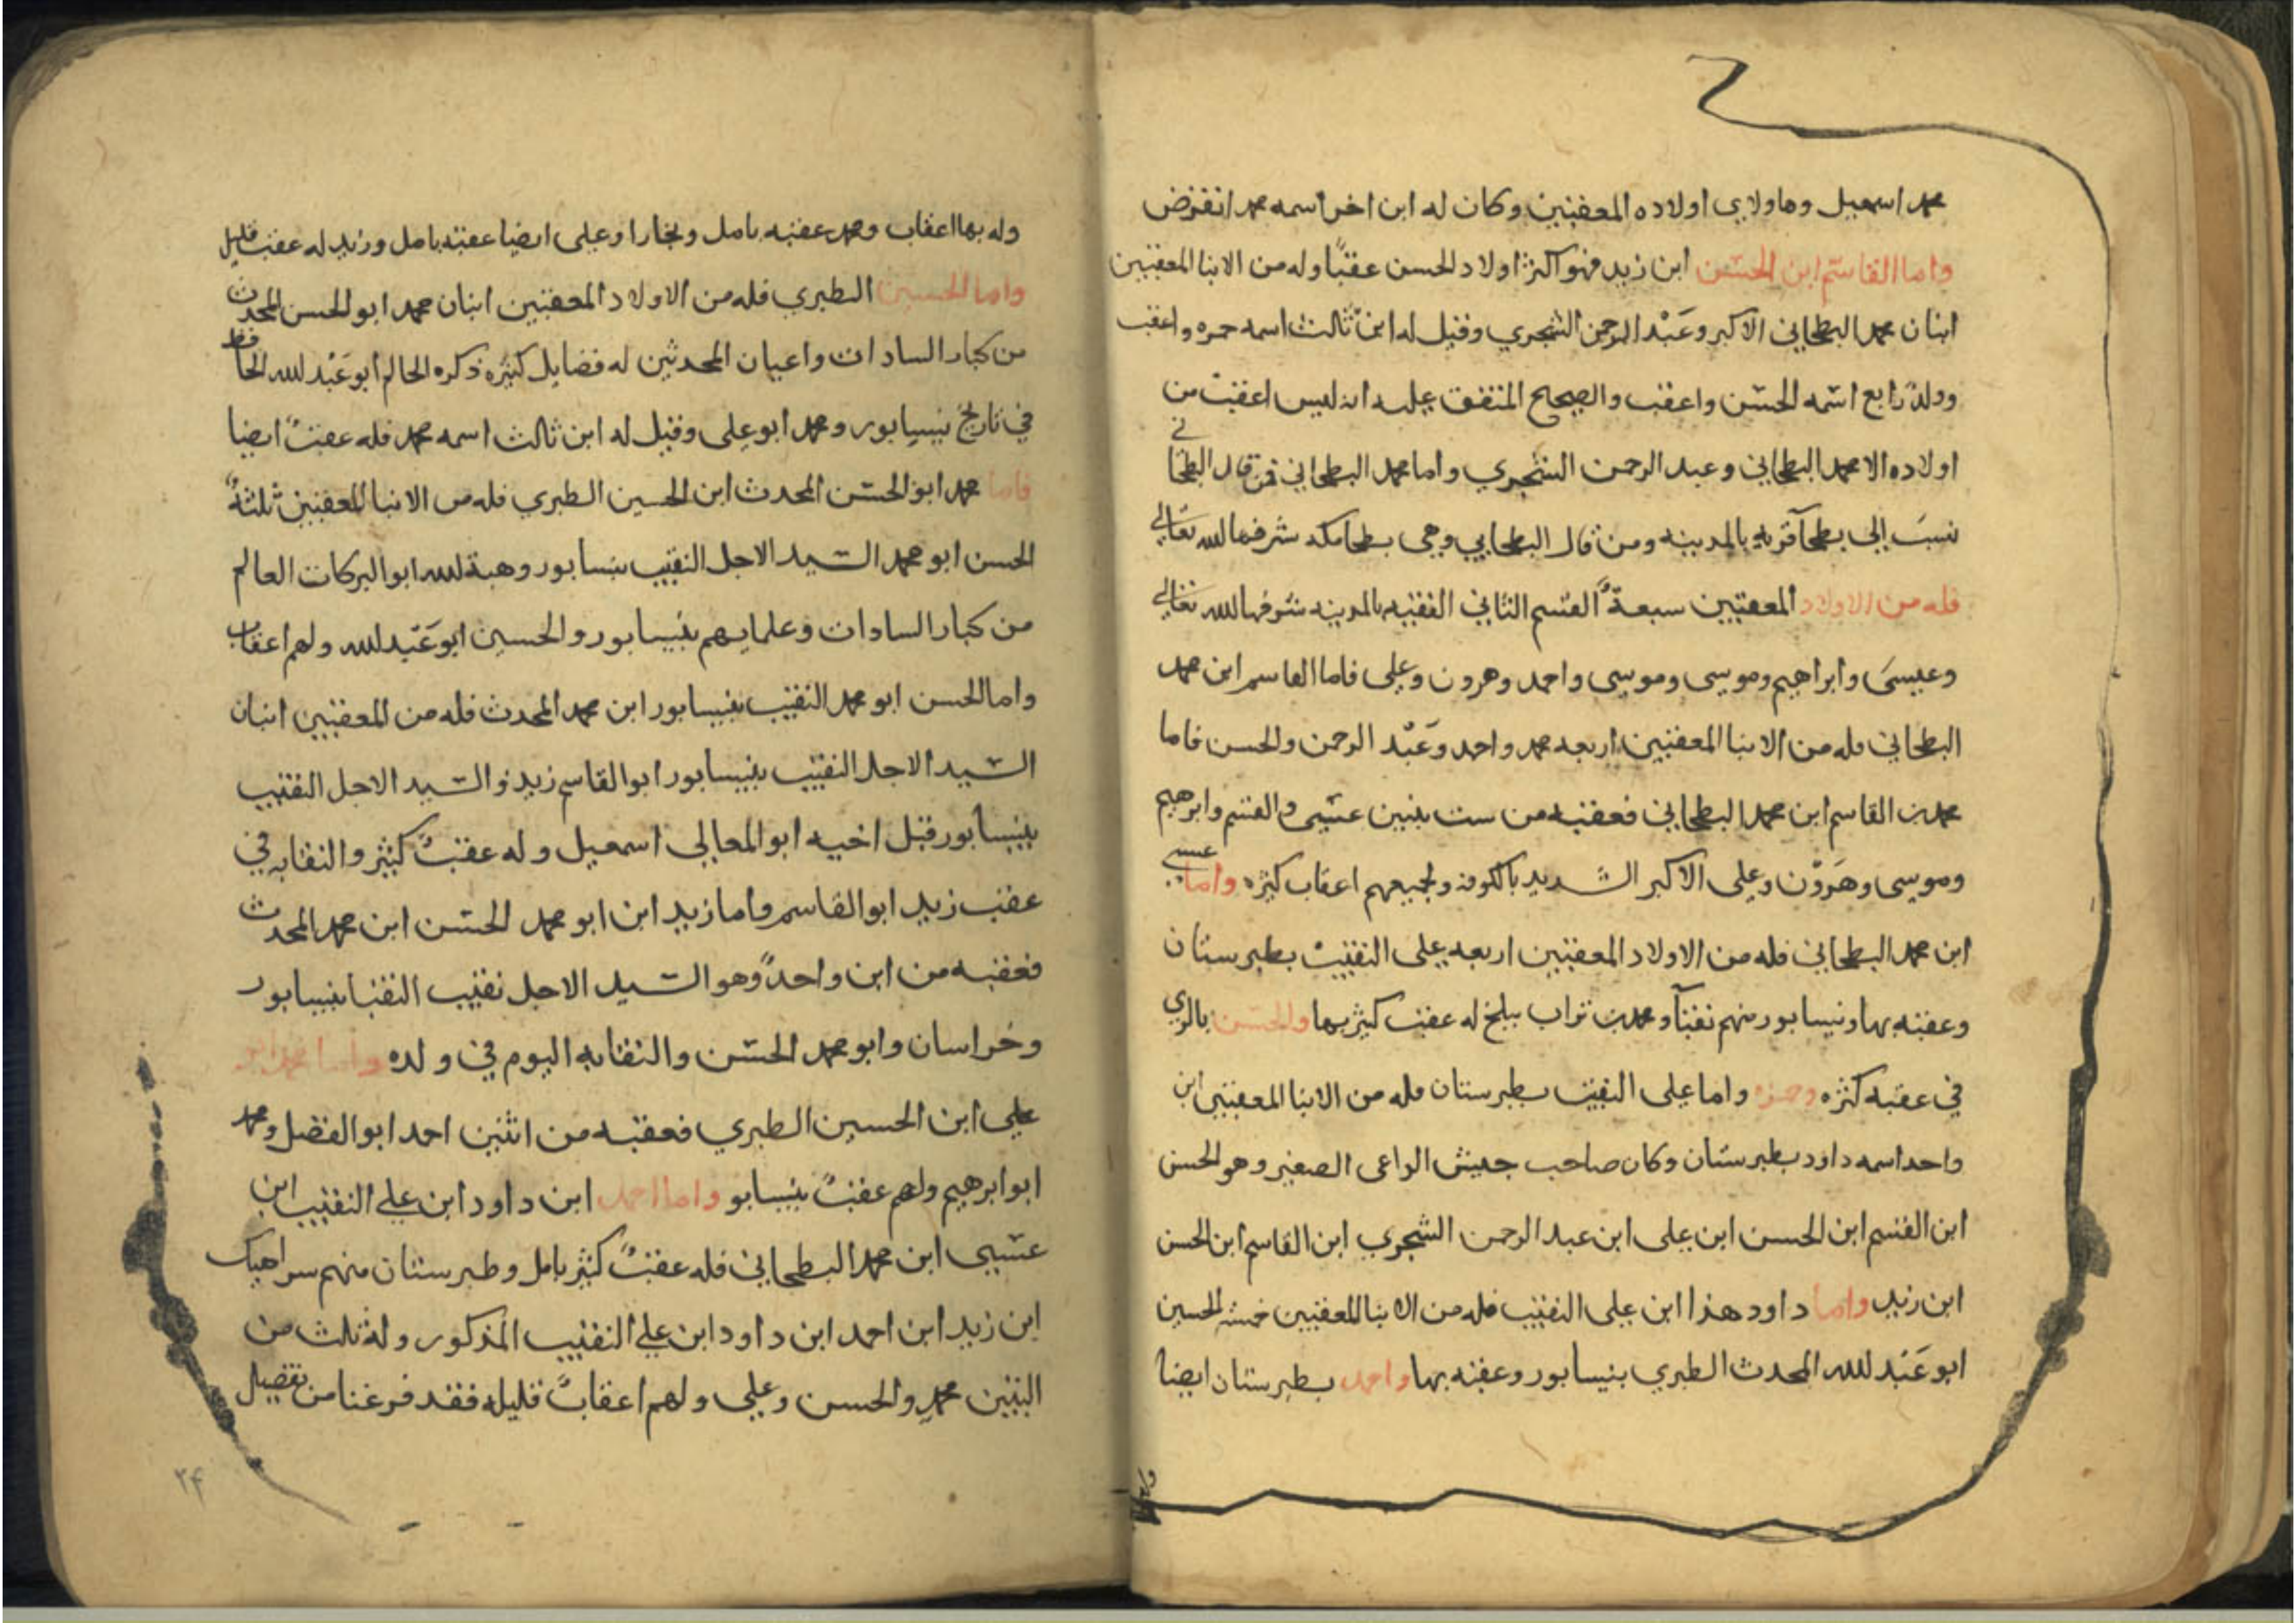 محمد اسمعيل وها ولاي اولاده المعقبين وكان له ابن اخر اسمه محمد انقرض
واما القاسم ابن الحسن ابن زيد فهو اكثر اولاد الحسن عقبًا وله من الابنا المعقبين
ابنان محمد البطحاني الاكبر وعَبْد الرحمن الشجري وقيل له ابن ثالث اسمه حمزه واعقب
وولدٌ رابع اسمه الحسن واعقب والصحيح المتفق عليه انه ليس اعقب من
اولاده الا محمد البطحاني وعبد الرحمن الشجري واما محمد البطحاني فمن قال البطحاني
نسبَ إلى بطحآ قريه بالمدينه ومن قال البطحايي وهي بطحا مكه شرفها الله تعالى
فله من الاولاد المعقبين سبعةٌ القسم الثاني الفقيه بالمدينه شرفها الله تعالى
وعيسىَ وابراهيم وموسى وموسى واحمد وهرون وعلى فاما القاسم ابن محمد
البطحاني فله من الابنا المعقبين اربعه محمد واحمد وعَبْد الرحمن والحسن فاما
محمد بن القاسم ابن محمد البطحاني فعقبه من ست بنين عيسى والقسم وابرهيم
وموسى وهَروْن وعلى الاكبر الشديد بالكوفه ولجميعهم اعقاب كثيره واما عيسى
ابن محمد البطحاني فله من الاولاد المعقبين اربعه على النقيب بطبرستان
وعقبه بها ونيسابور منهم نقبآ ومحمد بن تراب ببلخ له عقب كثير بها والحسن بالري
في عقبه كثره وحمزه واما على النقيب بطبرستان فله من الابنا المعقبين ابن
واحد اسمه داود بطبرستان وكان صاحب جيش الداعى الصغير وهو الحسن
ابن القسم ابن الحسن ابن على ابن عبد الرحمن الشجري ابن القاسم ابن الحسن
ابن زيد واما داود هذا ابن على النقيب فله من الابنا المعقبين خمسه الحسين
ابو عَبْد لله المحدث الطبري بنيسابور وعقبه بها واحمد بطبرستان ايضا
وله بها اعقاب ومحمد عقبه بامل وبخارا وعلى ايضا عقبه بامل وزيد له عقب قليل
واما الحسين الطبري فله من الاولاد المعقبين ابنان محمد ابو الحسن المحدث
من كبار السادات واعيان المحدثين له فضايل كثيره ذكره الحاكم ابو عَبْد لله الحافظ
في تاريخ نيسابور ومحمد ابو على وقيل له ابن ثالث اسمه محمد فله عقبٌ ايضا
فاما محمد ابو الحسن المحدث ابن الحسين الطبري فله من الابنا المعقبين ثلثةٌ
الحسن ابو محمد السيد الاجل النقيب بنيسابور وهبة لله ابو البركات العالم
من كبار السادات وعلمايهم بنيسابور والحسين ابو عَبْد لله ولهم اعقاب
واما الحسن ابو محمد النقيب بنيسابور ابن محمد المحدث فله من المعقبين ابنان
السيد الاجل النقيب بنيسابور ابو القاسم زيد والسيد الاجل النقيب
بنيسابور قبل اخيه ابو المعالي اسمعيل وله عقبٌ كثير والنقابه في
عقب زيد ابو القاسم واما زيد ابن ابو محمد الحسن ابن محمد المحدث
فعقبه من ابن واحدٌ وهو السيد الاجل نقيب النقبا بنيسابور
وخراسان وابو محمد الحسن والنقابه اليوم في ولده واما محمد ابو
على ابن الحسين الطبري فعقبه من اثنين احمد ابو الفضل ومحمد
ابو ابرهيم ولهم عقبٌ بنيسابو واما احمد ابن داود ابن على النقيب ابن
عيسى ابن محمد البطحاني فله عقبٌ كثير بامل وطبرستان منهم سراهيك
ابن زيد ابن احمد ابن داود ابن على النقيب المذكور وله ثلث من
البنين محمد والحسن وعلى ولهم اعقابٌ قليله فقد فرغنا من تفصيل
۲۴